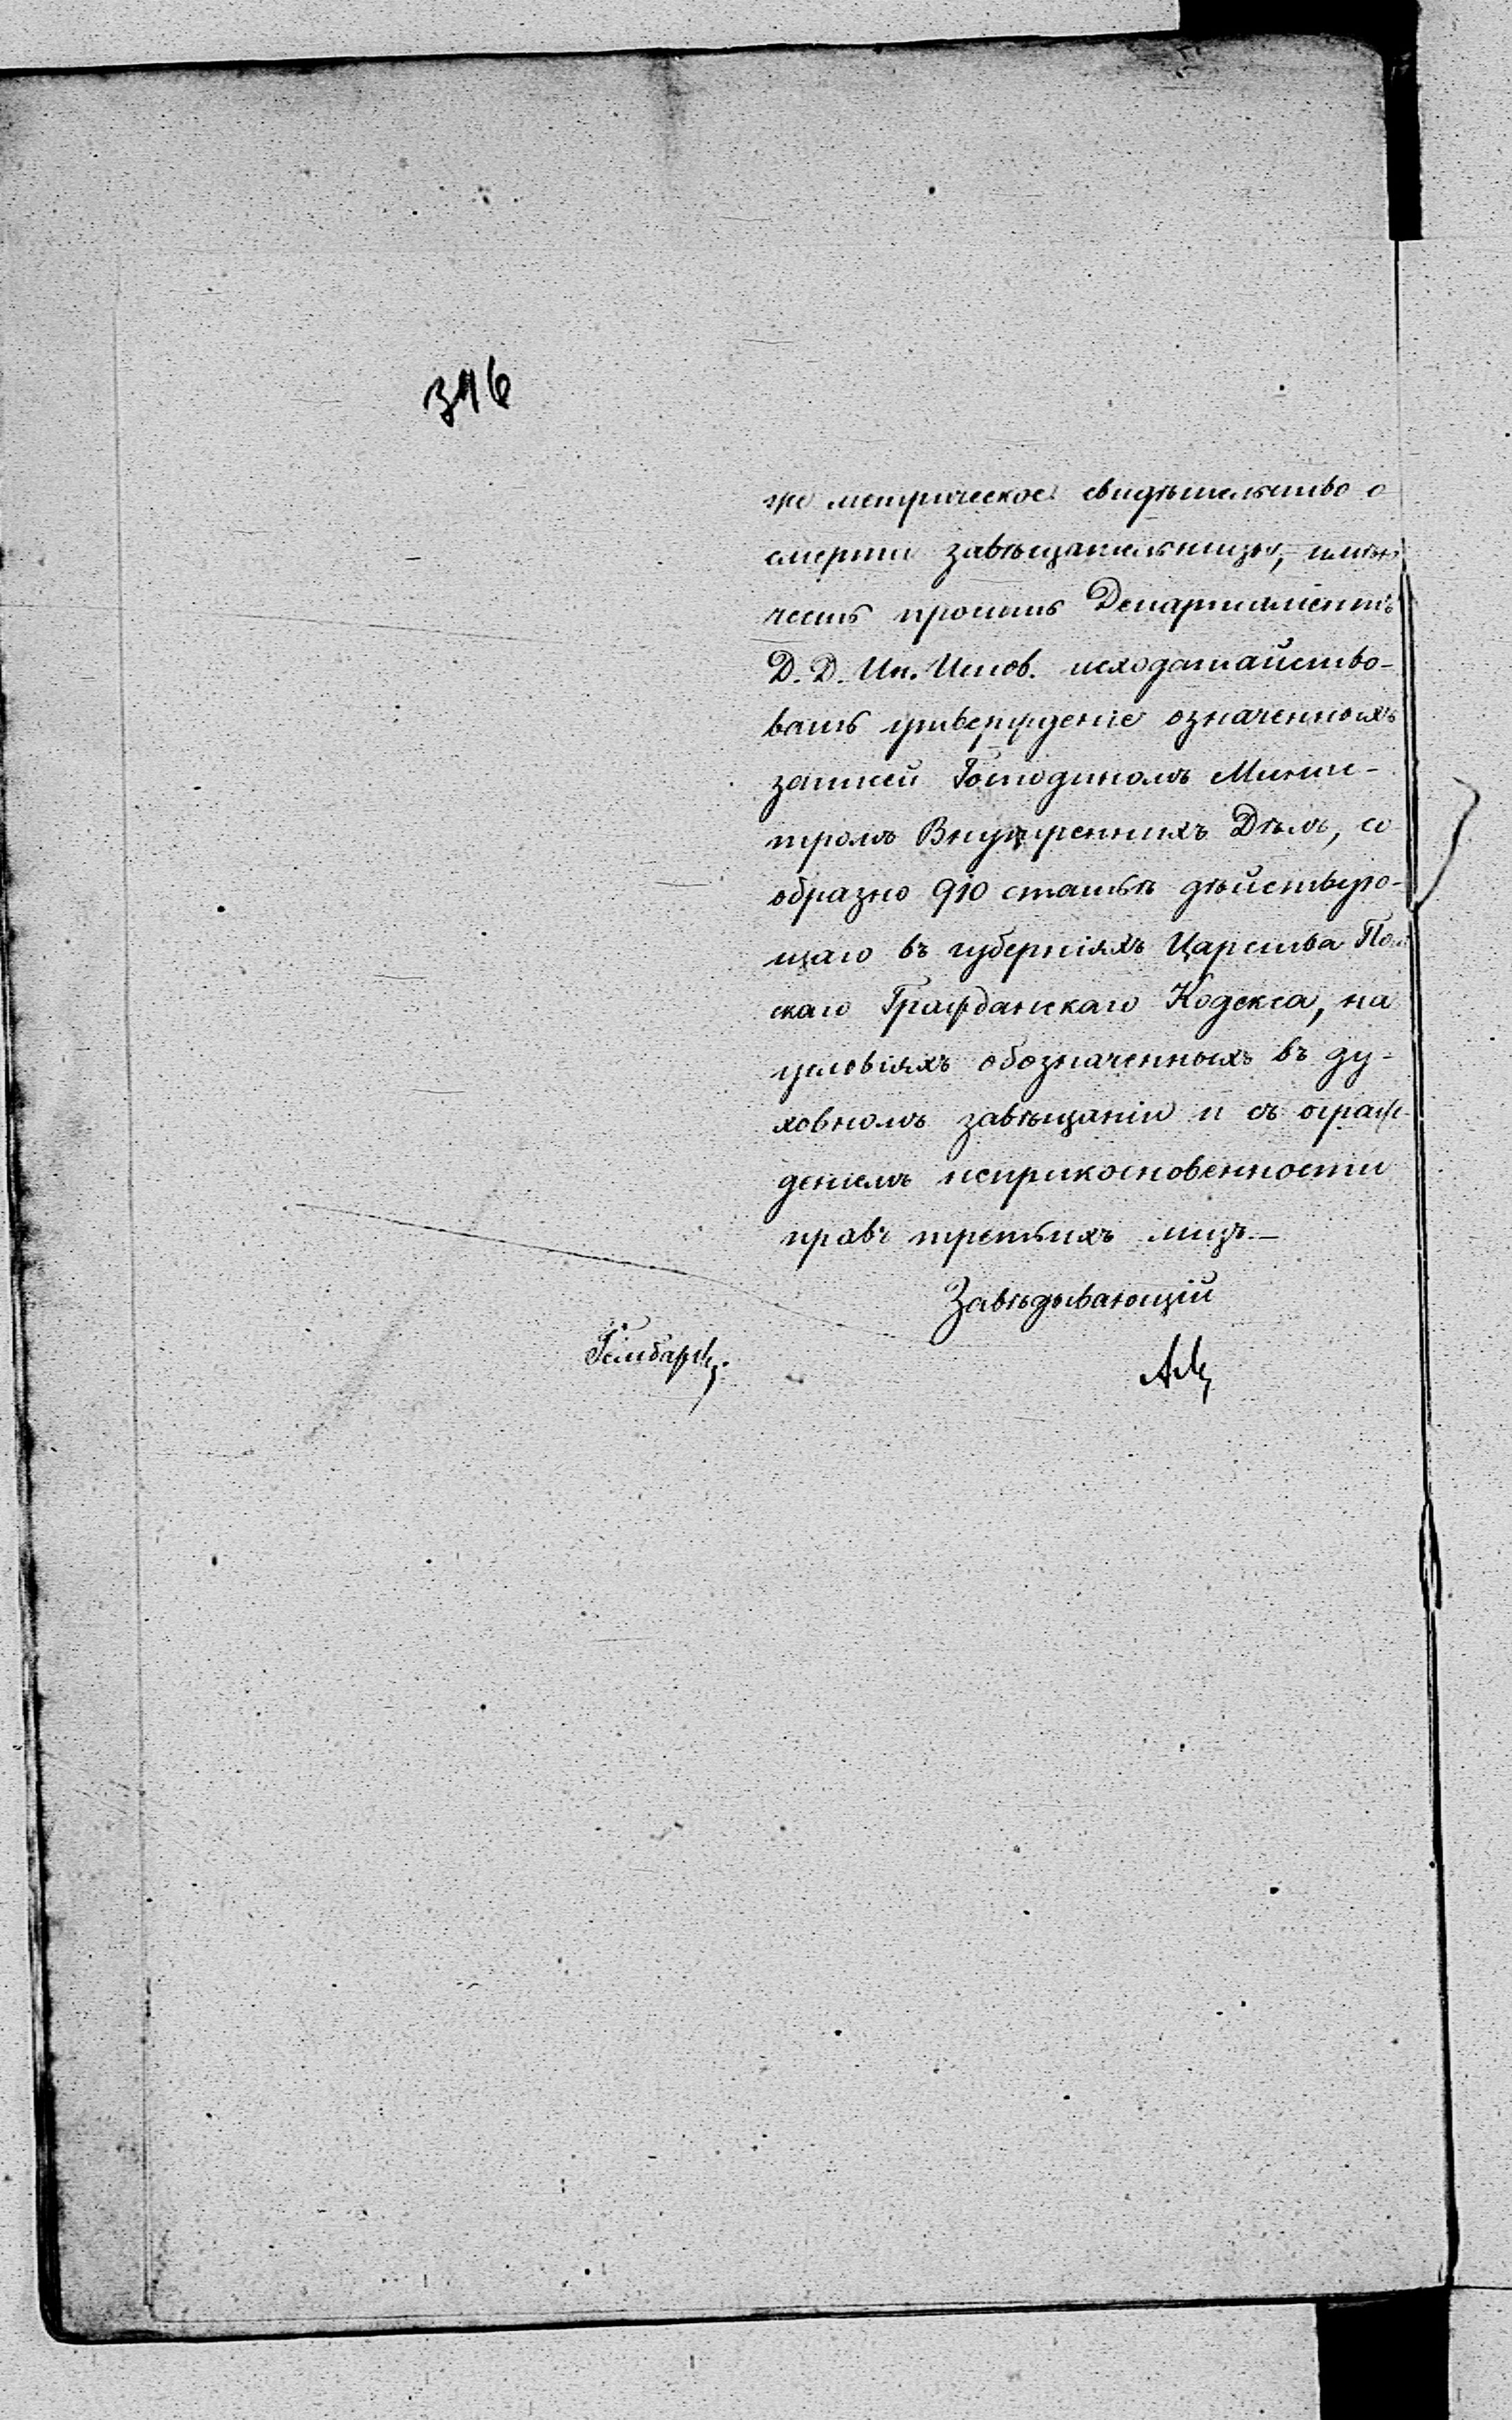 346
же метрическое свидѣтельство о
смерти завѣщательницы, имѣю
честь просить Департаментъ
Д. Д. Ин. Испов. исходатайство-
вать утвержденіе означенныхъ
записей Господиномъ Минис-
тромъ Внутреннихъ Дѣлъ, со
образно 910 статьѣ дѣйствую-
щаго въ губерніяхъ Царства Поль
скаго Гражданскаго Кодекса, на
условіяхъ обозначенныхъ въ ду-
ховномъ завѣщаніи и съ ограж-
деніемъ неприкосновенности
правъ третьихъ лицъ.—
Завѣдывающій